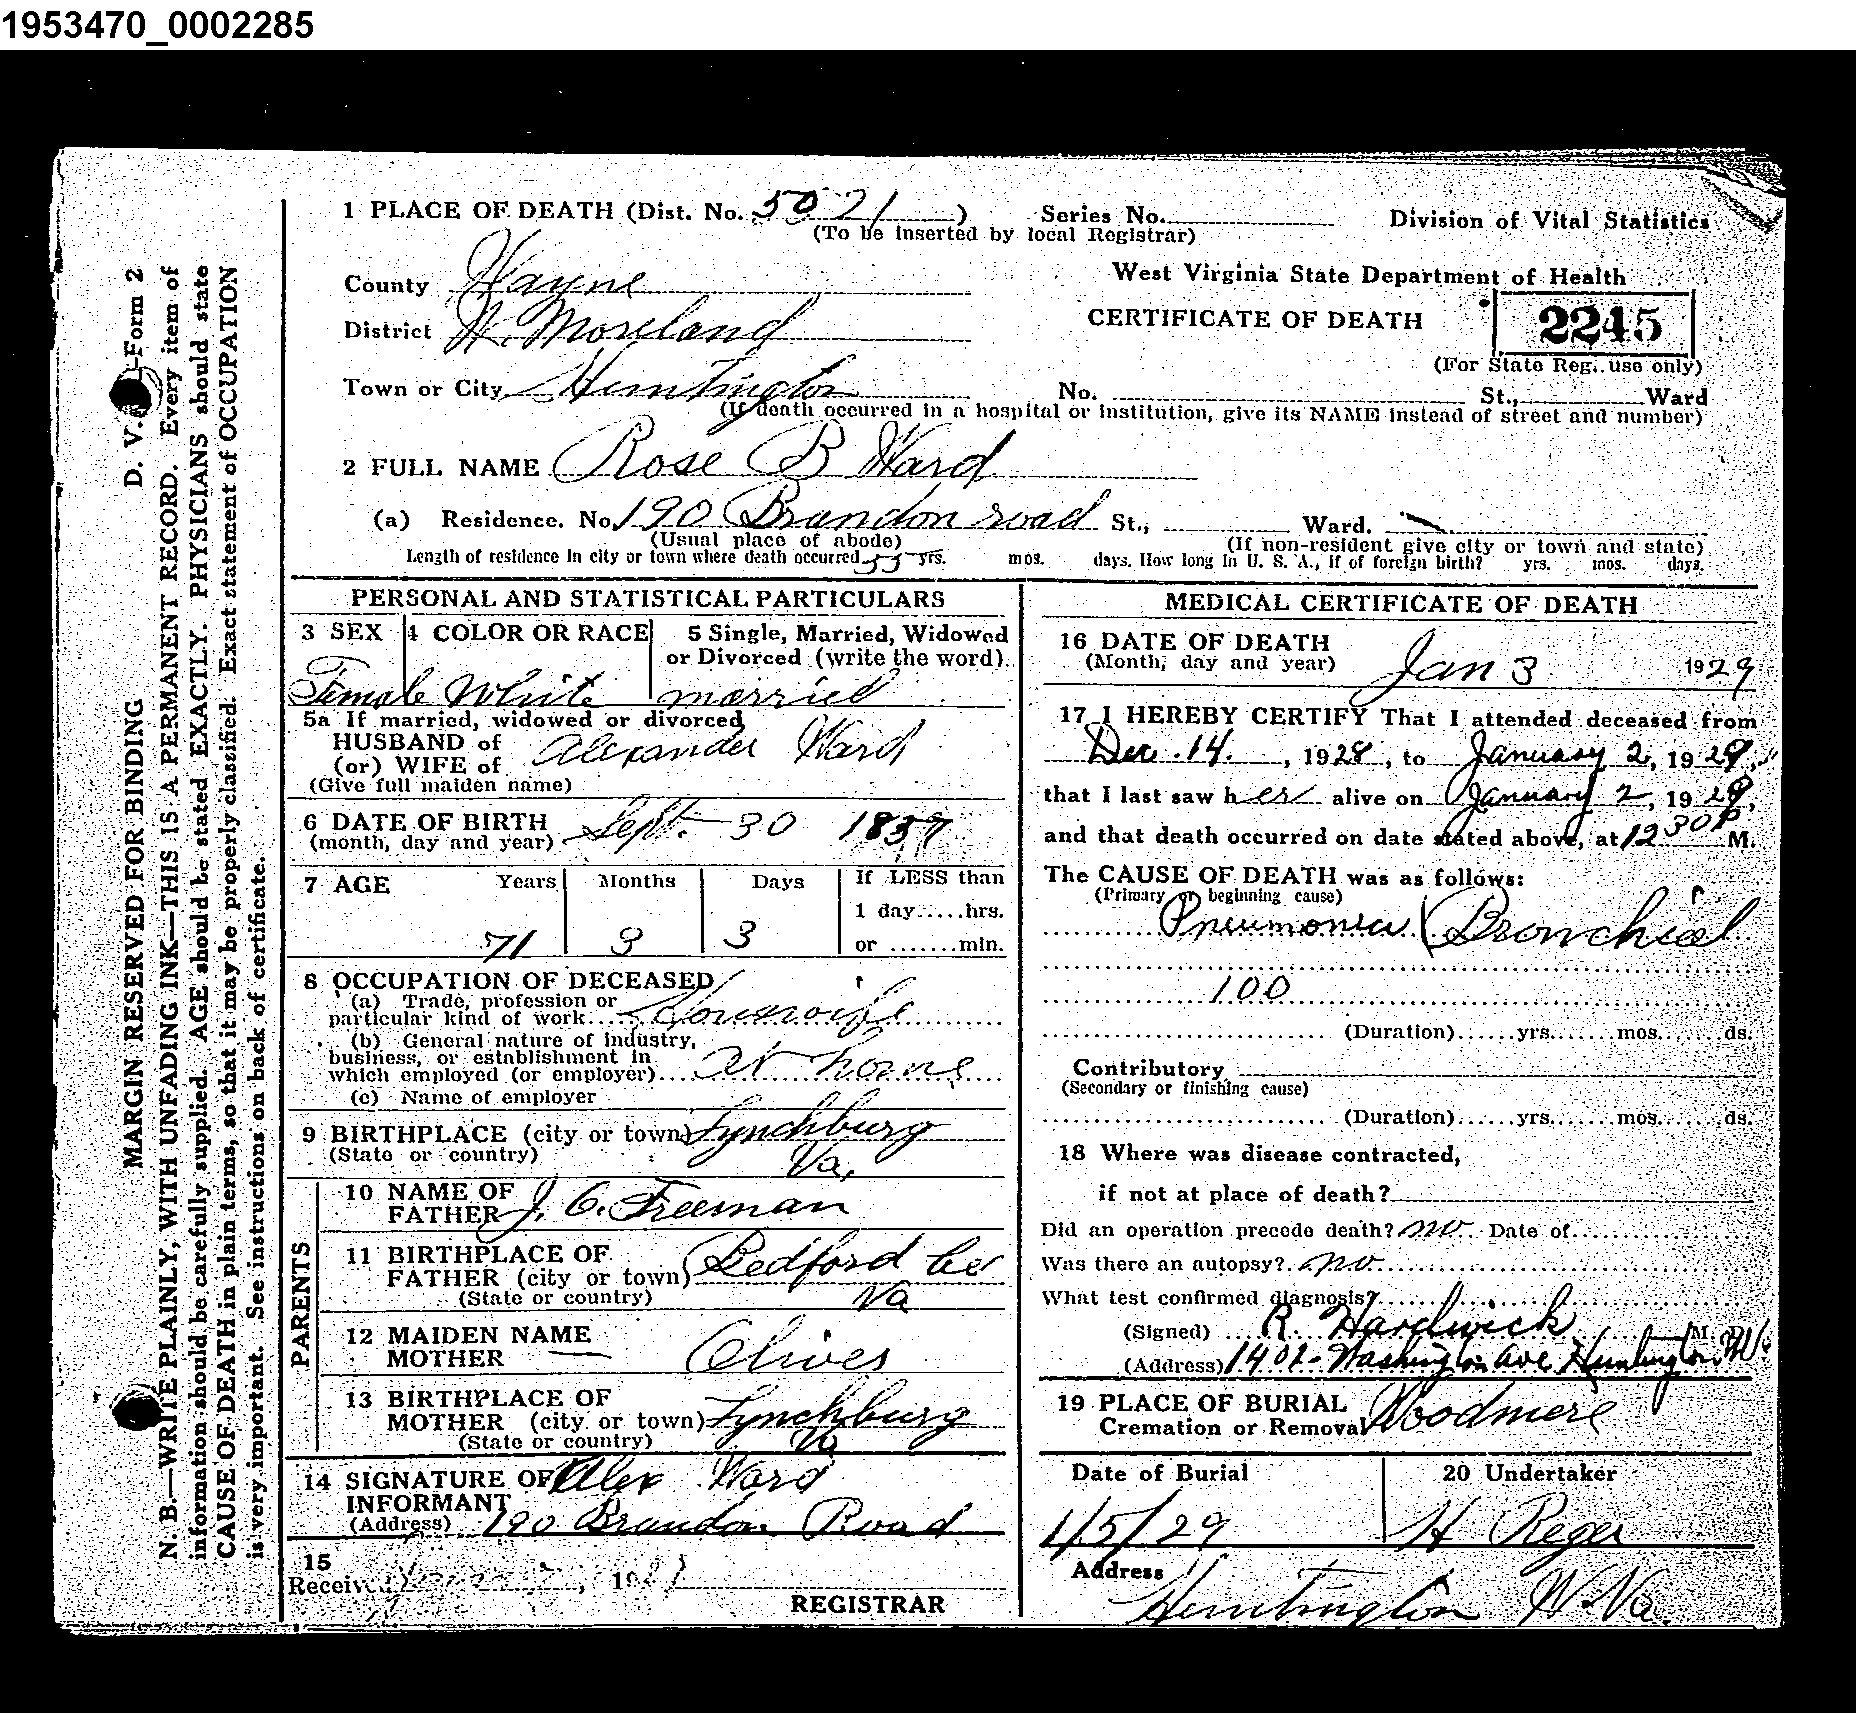 1953470_0002285
1 PLACE OF DEATH (Dist. No. 5021)
(To be inserted by local Registrar)
Series No.
Division of Vital Statistics
County Wayne
West Virginia State Department of Health
District W. Moreland
CERTIFICATE OF DEATH
2245
(For State Reg. use only)
Town or City Huntington
No. St., Ward
(If death occurred in a hospital or institution, give its NAME instead of street and number)
2 FULL NAME Rose B Ward
(a) Residence. No. 190 Brandon road St., Ward.
(Usual place of abode)
(If non-resident give city or town and state)
Length of residence in city or town where death occurred 55 yrs. mos. days. How long in U. S. A., if of foreign birth? yrs. mos. days.
PERSONAL AND STATISTICAL PARTICULARS
3 SEX 4 COLOR OR RACE 5 Single, Married, Widowed
or Divorced (write the word)
Female White married
5a If married, widowed or divorced
HUSBAND of
(or) WIFE of Alexander Ward
(Give full maiden name)
6 DATE OF BIRTH Sept. 30 1857
(month, day and year)
7 AGE Years Months Days If LESS than
1 day.....hrs.
71 3 3 or .......min.
8 OCCUPATION OF DECEASED
(a) Trade, profession or
particular kind of work Housewife
(b) General nature of industry,
business, or establishment in
which employed (or employer) at home
(c) Name of employer
9 BIRTHPLACE (city or town) Lynchburg
(State or country) Va.
PARENTS
10 NAME OF
FATHER J. C. Freeman
11 BIRTHPLACE OF
FATHER (city or town) Bedford Co
(State or country) Va
12 MAIDEN NAME
MOTHER Olives
13 BIRTHPLACE OF
MOTHER (city or town) Lynchburg
(State or country) Va
14 SIGNATURE OF Alex Ward
INFORMANT
(Address) 190 Brandon Road
15
Received , 19
REGISTRAR
MEDICAL CERTIFICATE OF DEATH
16 DATE OF DEATH
(Month, day and year) Jan 3 1929
17 I HEREBY CERTIFY That I attended deceased from
Dec. 14, 1928, to January 2, 1929,
that I last saw her alive on January 2, 1929,
and that death occurred on date stated above, at 12 30 P M.
The CAUSE OF DEATH was as follows:
(Primary or beginning cause)
Pneumonia (Bronchial
100
(Duration)......yrs.......mos.......ds.
Contributory
(Secondary or finishing cause)
(Duration)......yrs.......mos.......ds.
18 Where was disease contracted,
if not at place of death?
Did an operation precede death? no Date of
Was there an autopsy? no
What test confirmed diagnosis?
(Signed) R. Hardwick M.
(Address) 1401- Washington Ave Huntington, W.V.
19 PLACE OF BURIAL
Cremation or Removal Woodmere
Date of Burial 20 Undertaker
1/5/29 H Reger
Address
Huntington W. Va.
D. V. S.—Form 2
MARGIN RESERVED FOR BINDING
N. B.—WRITE PLAINLY, WITH UNFADING INK—THIS IS A PERMANENT RECORD. Every item of
information should be carefully supplied. AGE should be stated EXACTLY. PHYSICIANS should state
CAUSE OF DEATH in plain terms, so that it may be properly classified. Exact statement of OCCUPATION
is very important. See instructions on back of certificate.